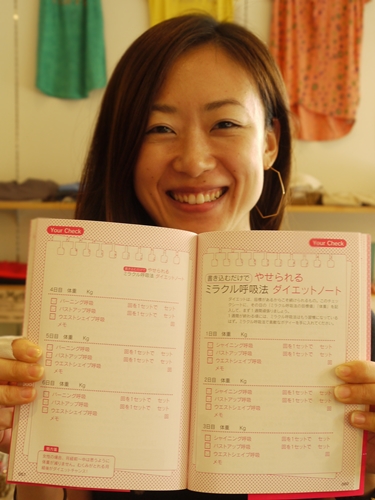 Your Check
やせられる
ミラクル呼吸法 ダイエットノート
4日目 体重 Kg
バーニング呼吸 回を1セットで セット
バストアップ呼吸 回を1セットで セット
ウエストシェイプ呼吸 回
メモ
5日目 体重 Kg
バーニング呼吸 回を1セットで セット
バストアップ呼吸 回を1セットで セット
ウエストシェイプ呼吸 回
メモ
6日目 体重 Kg
バーニング呼吸 回を1セットで セット
バストアップ呼吸 回を1セットで セット
ウエストシェイプ呼吸 回を1セットで セット
メモ
Your Check
書き込むだけで やせられる
ミラクル呼吸法 ダイエットノート
1日目 体重 Kg
シャイニング呼吸 回を1セットで セット
バストアップ呼吸 回を1セットで セット
ウエストシェイプ呼吸 回
メモ
2日目 体重 Kg
シャイニング呼吸 回を1セットで セット
バストアップ呼吸 回を1セットで セット
ウエストシェイプ呼吸 回
メモ
3日目 体重 Kg
シャイニング呼吸 回を1セットで セット
バストアップ呼吸 回を1セットで セット
ウエストシェイプ呼吸 回
メモ